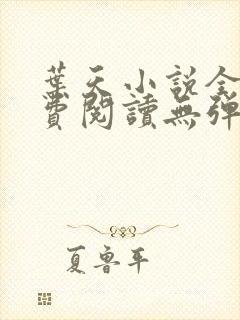 葉天小說全
費閱讀無彈
夏魯平